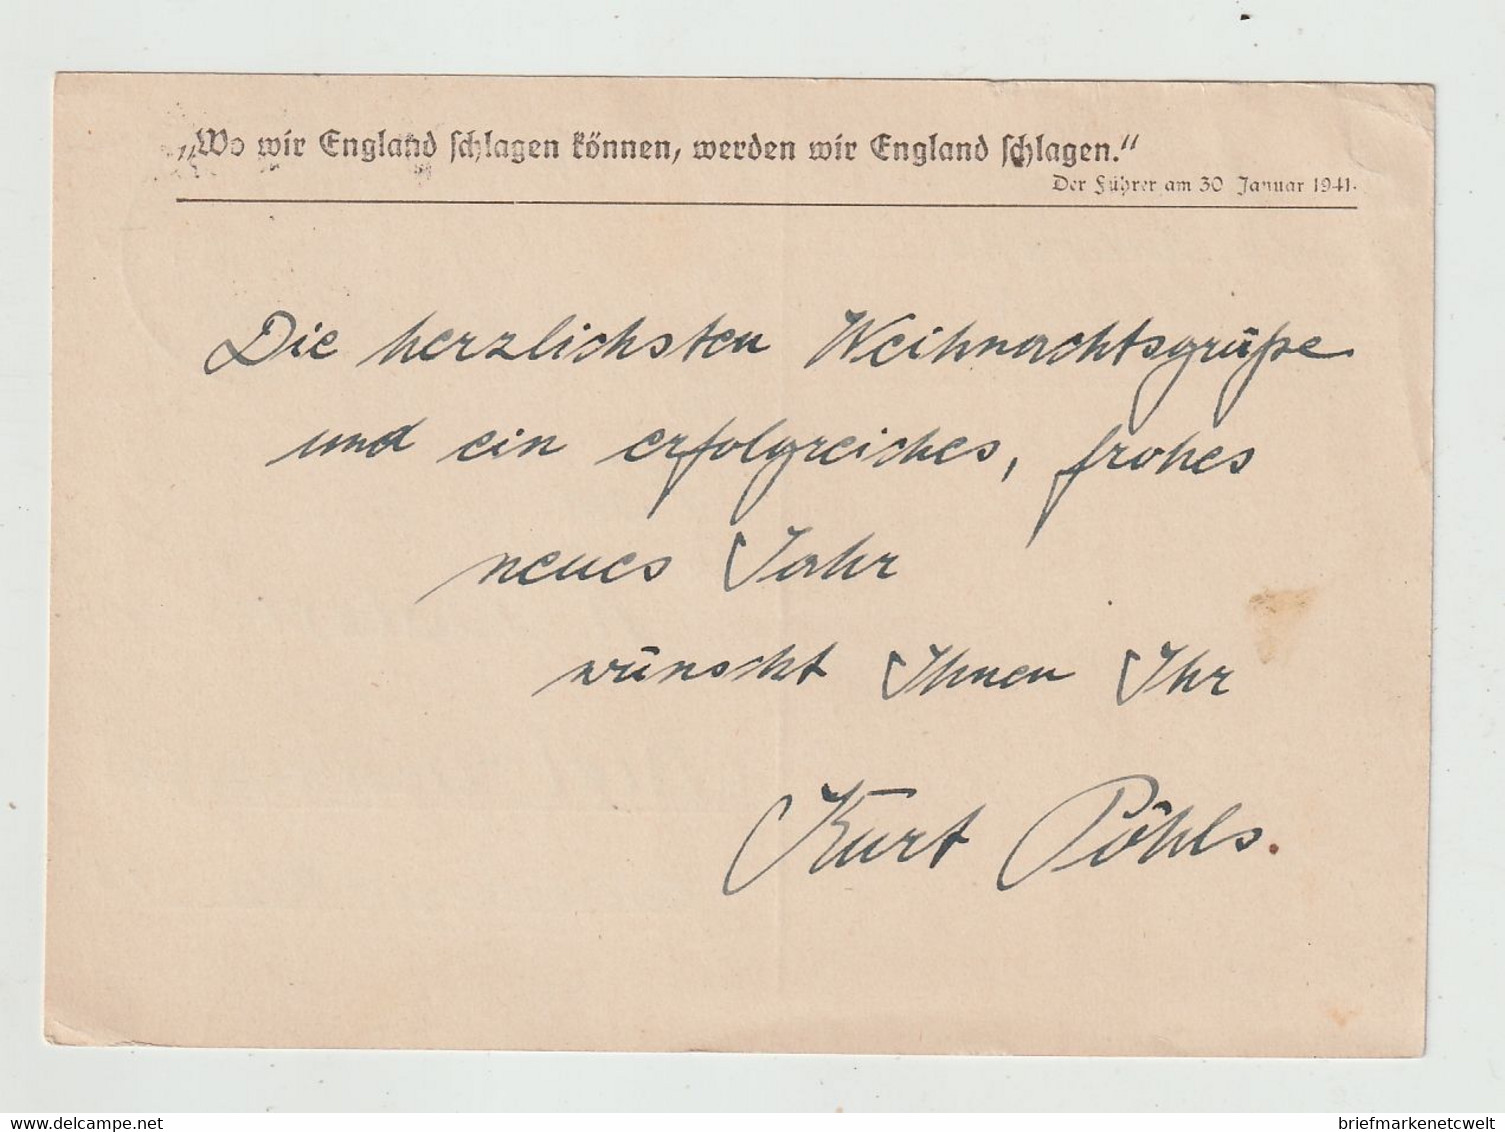 „Wo wir England schlagen können, werden wir England schlagen.“
Der Führer am 30 Januar 1941.
Die herzlichsten Weihnachtsgrüße
und ein erfolgreiches, frohes
neues Jahr
wünscht Ihnen Ihr
Kurt Pöhls.
briefmarkenetcwelt